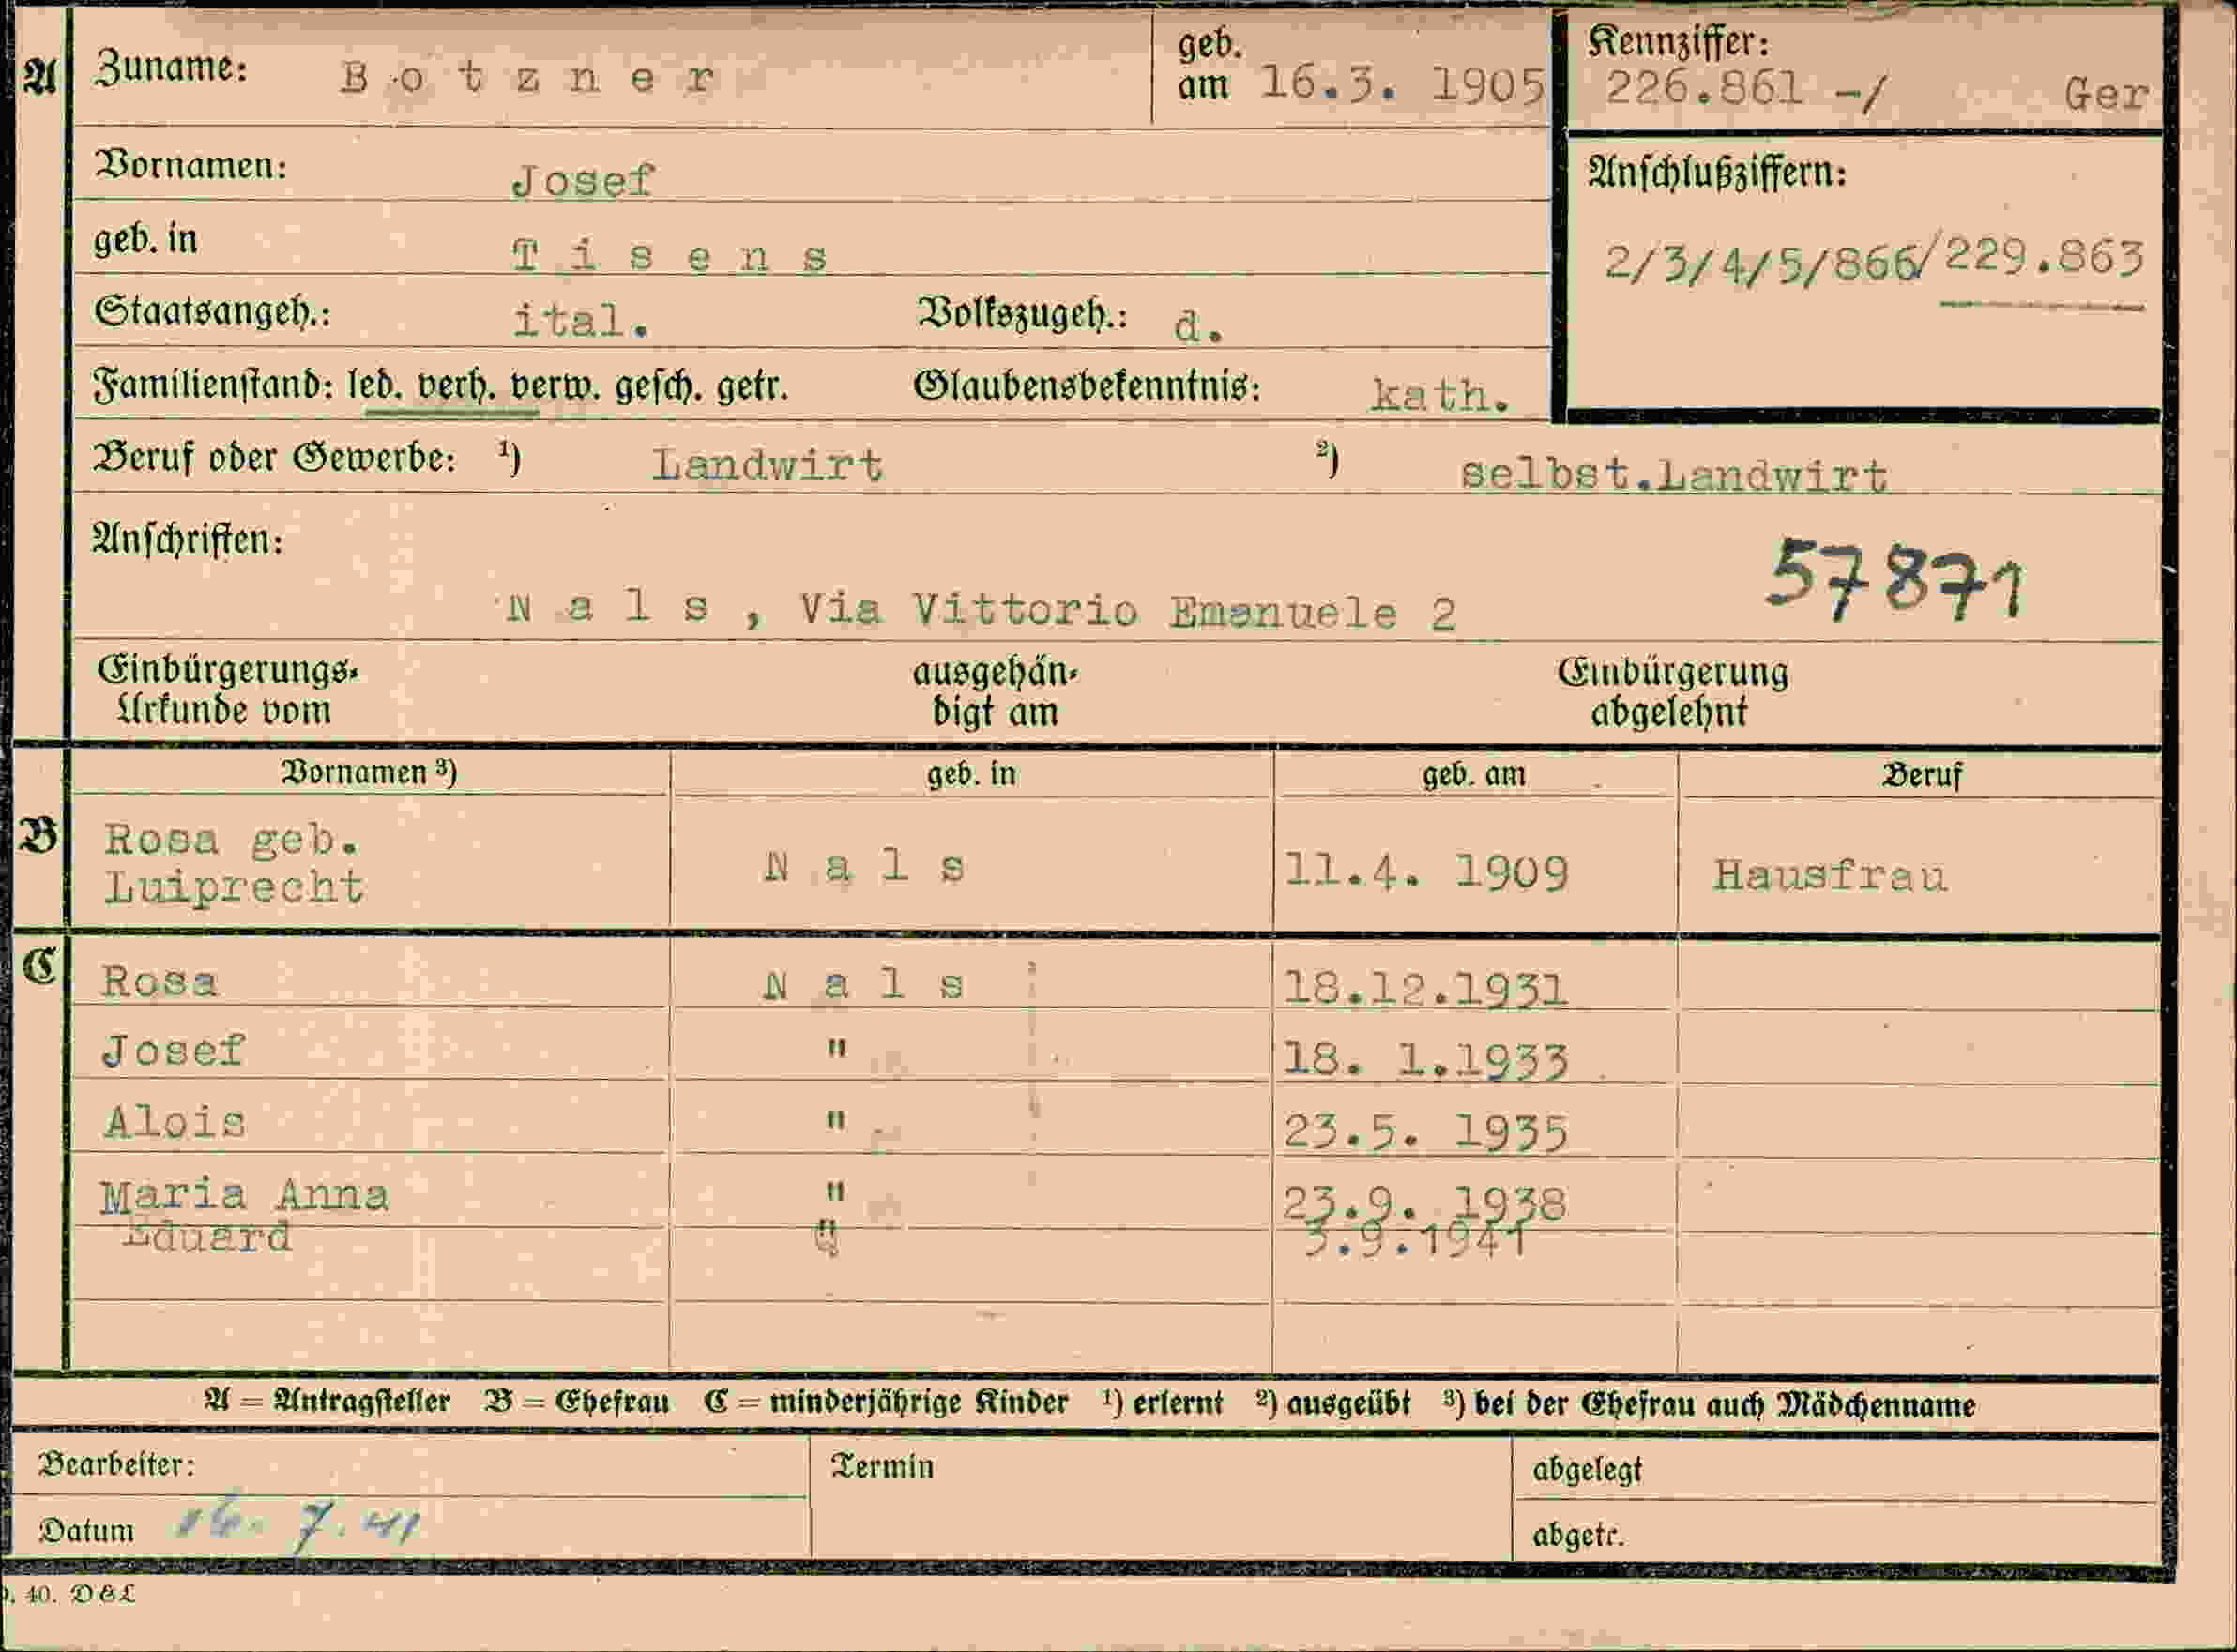 A Zuname: Botzner geb. am 16.3. 1905 Kennziffer: 226.861 -/ Ger
Vornamen: Josef
Anschlußziffern:
geb. in Tisens
2/3/4/5/866/229.863
Staatsangeh.: ital. Volkszugeh.: d.
Familienstand: led. verh. verw. gesch. getr. Glaubensbekenntnis: kath.
Beruf oder Gewerbe: ¹) Landwirt ²) selbst.Landwirt
Anschriften:
57871
Nals, Via Vittorio Emanuele 2
Einbürgerungs- ausgehän- Einbürgerung
Urkunde vom digt am abgelehnt
Vornamen ³) geb. in geb. am Beruf
B Rosa geb. Nals 11.4. 1909 Hausfrau
Luiprecht
C Rosa Nals 18.12.1931
Josef " 18. 1.1933
Alois " 23.5. 1935
Maria Anna " 23.9. 1938
Eduard " 3.9.1941
A = Antragsteller B = Ehefrau C = minderjährige Kinder ¹) erlernt ²) ausgeübt ³) bei der Ehefrau auch Mädchenname
Bearbeiter: Termin abgelegt
Datum 16. 7. 41 abgetr.
40. D&L